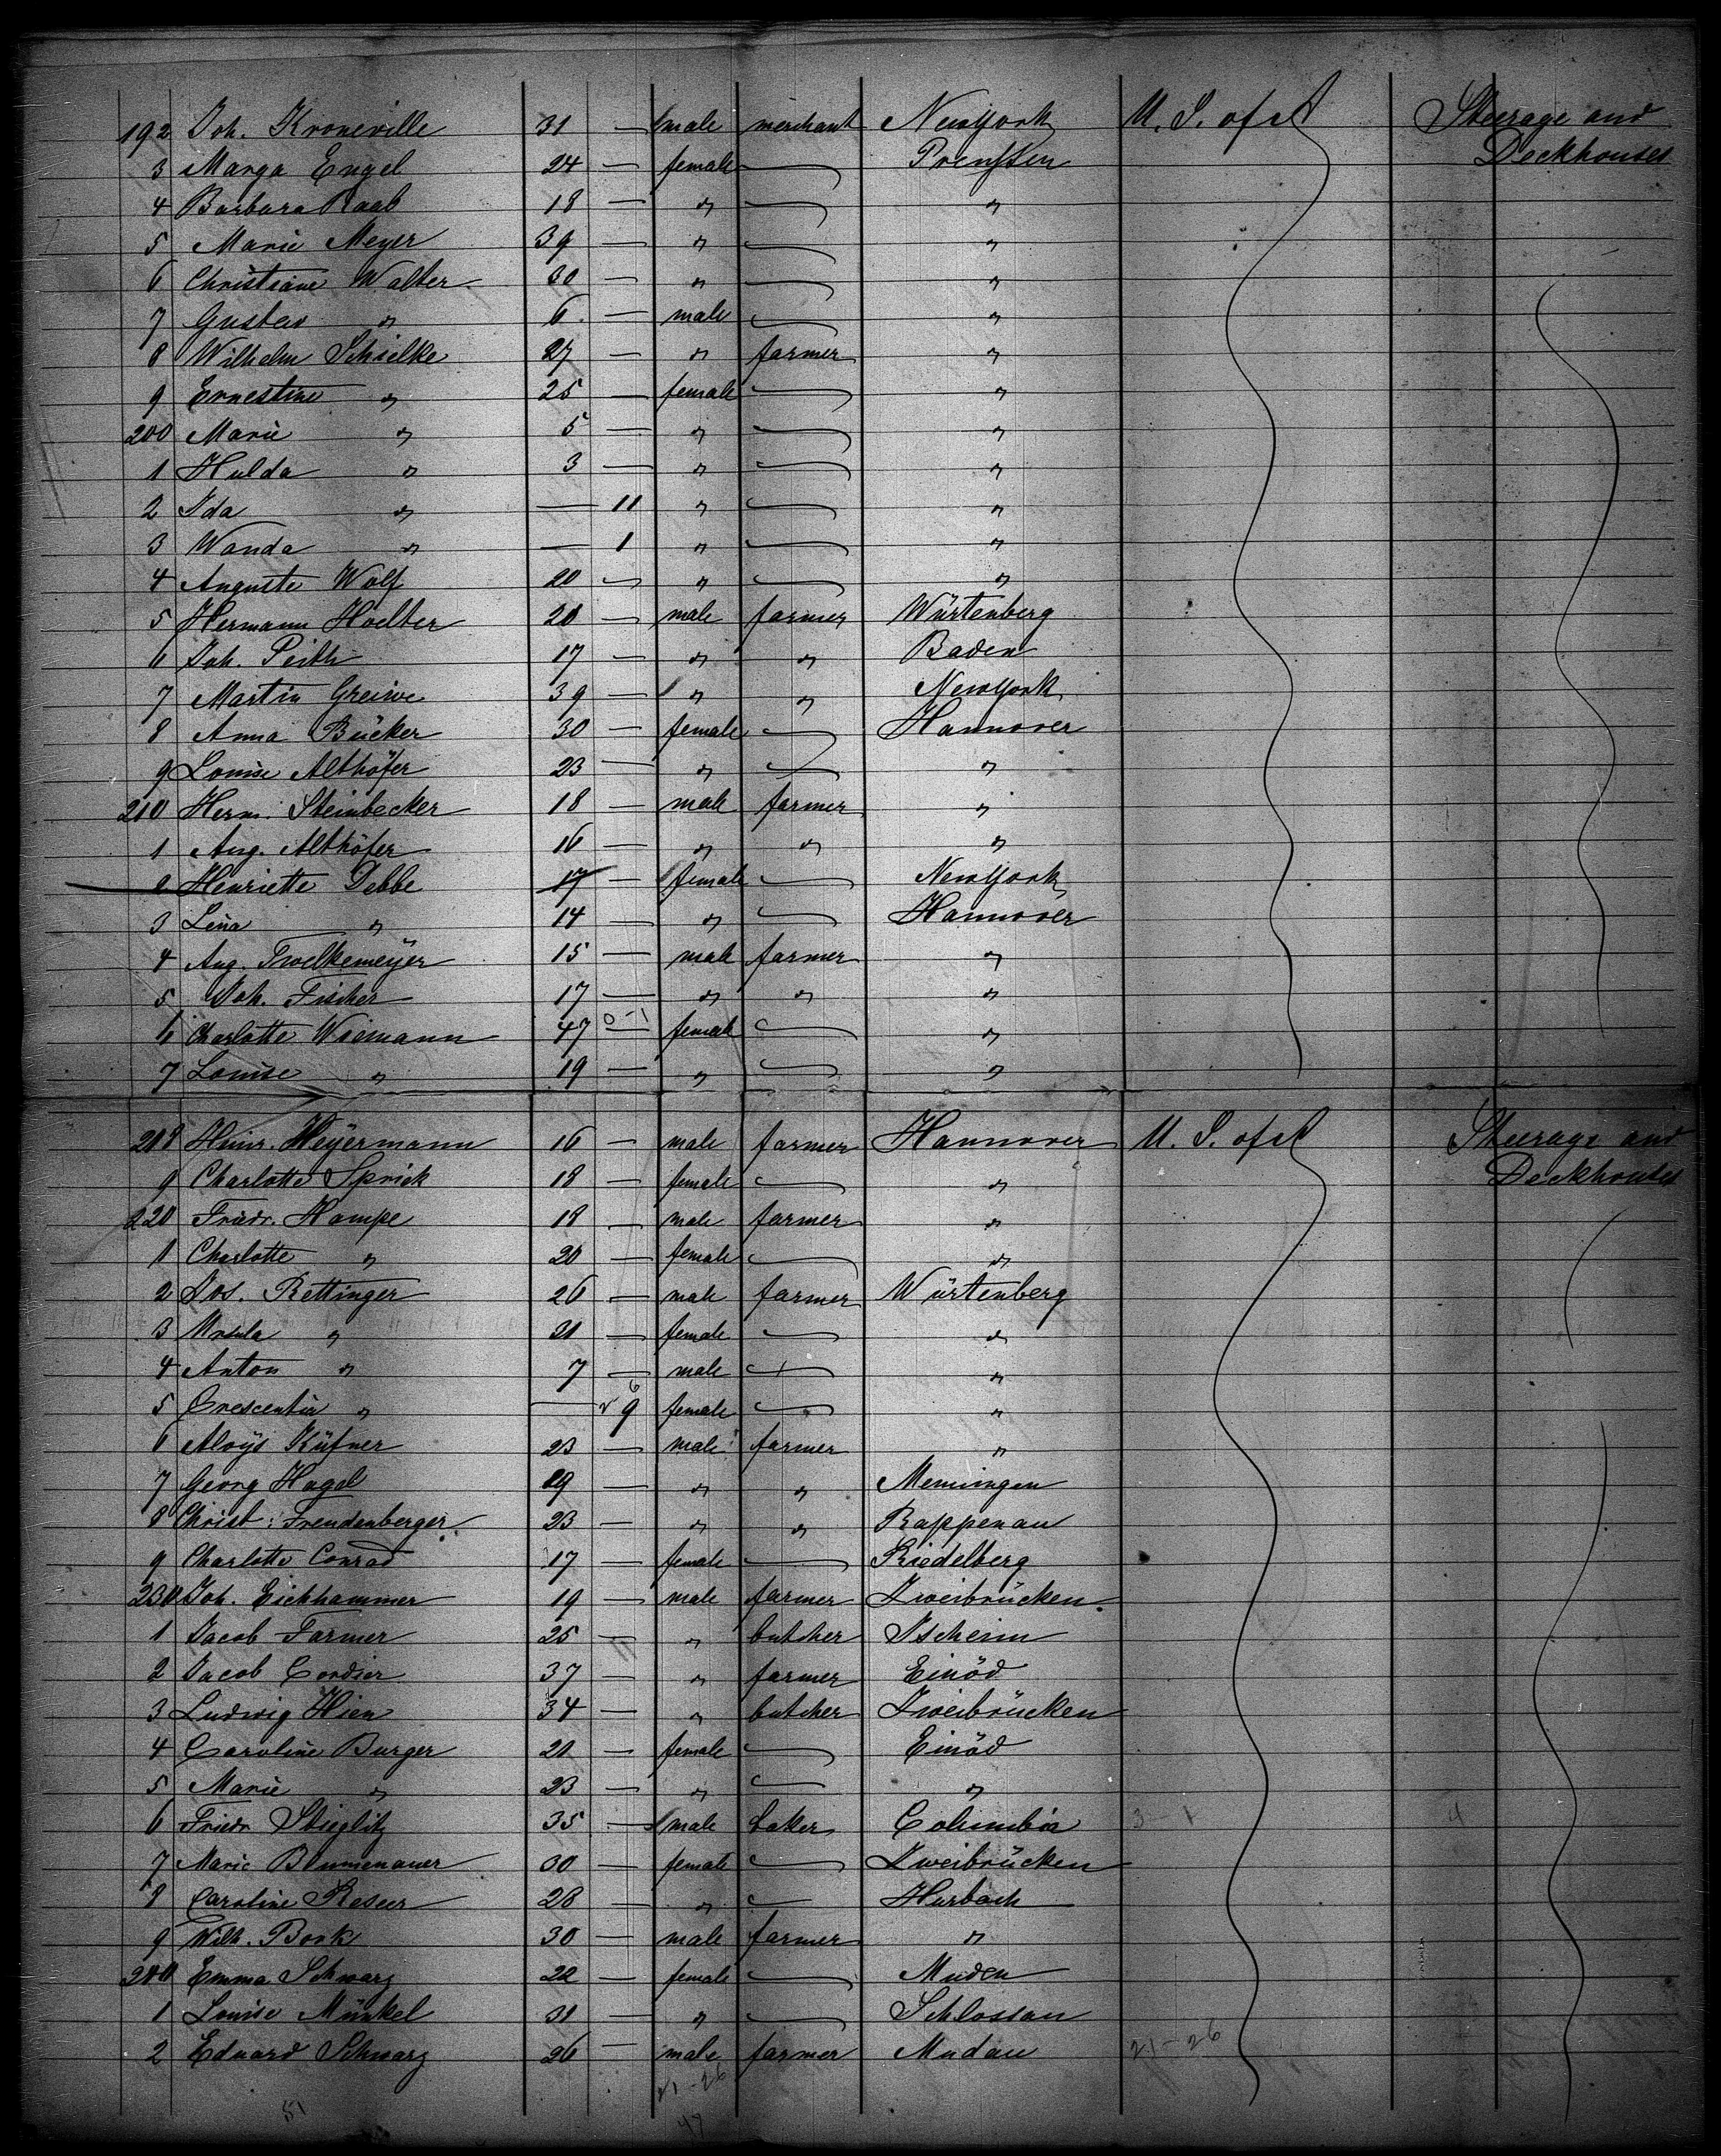 192 Joh. Kroneville 31 — male merchant New York U. S. of A Steerage and
3 Marga Engel 24 — female — Preußen Deckhouses
4 Barbara Raab 18 — " — "
5 Marie Meyer 39 — " — "
6 Christiane Walter 30 — " — "
7 Gustav " 6 — male — "
8 Wilhelm Schielke 27 — " farmer "
9 Ernestine " 25 — female — "
200 Marie " 5 — " — "
1 Hulda " 3 — " — "
2 Ida " — 11 " — "
3 Wanda " — 1 " — "
4 Auguste Wolf 20 — " — "
5 Hermann Hoelter 20 — male farmer Würtenberg
6 Joh. Peith 17 — " " Baden
7 Martin Greiwe 39 — " " New York
8 Anna Bücker 30 — female — Hannover
9 Louise Althöfer 23 — " — "
210 Herm. Steinbecker 18 — male farmer "
1 Aug. Althöfer 16 — " " "
2 Henriette Debbe 17 — female — New York
3 Lina " 14 — " — Hannover
4 Aug. Twelkemeÿer 15 — male farmer "
5 Joh. Fischer 17 — " " "
6 Charlotte Wiemann 47 0-1 — female — "
7 Louise " 19 — " — "
218 Heinr. Heÿermann 16 — male farmer Hannover U. S. of A Steerage and
9 Charlotte Sprick 18 — female — " Deckhouses
220 Friedr. Hampe 18 — male farmer "
1 Charlotte " 20 — female — "
2 Jos. Rettinger 26 — male farmer Würtenberg
3 Ursula " 31 — female — "
4 Anton " 7 — male — "
5 Crescentia " — 9 6 female — "
6 Aloÿs Küfner 23 — male farmer "
7 Georg Hagel 29 — " " Memingen
8 Christ: Freudenberger 23 — " " Rappenau
9 Charlotte Conrad 17 — female — Riedelberg
230 Joh. Eichhammer 19 — male farmer Zweibrücken
1 Jacob Farmer 25 — " butcher Ixheim
2 Jacob Cordier 37 — " farmer Einöd
3 Ludwig Hien 34 — " butcher Zweibrücken
4 Caroline Burger 21 — female — Einöd
5 Marie " 23 — " — "
6 Friedr Stieglitz 35 — male baker Columbia 3 - 1 4
7 Marie Blumenauer 30 — female — Zweibrücken
8 Caroline 28 — " — Hurbach
9 Wilh. Bock 30 — male farmer "
240 Emma Schwarz 22 — female — Muden
1 Louise Münkel 31 — " — Schlossau
2 Eduard Schwarz 26 — male farmer Mudau 21-26
21-26
51 47